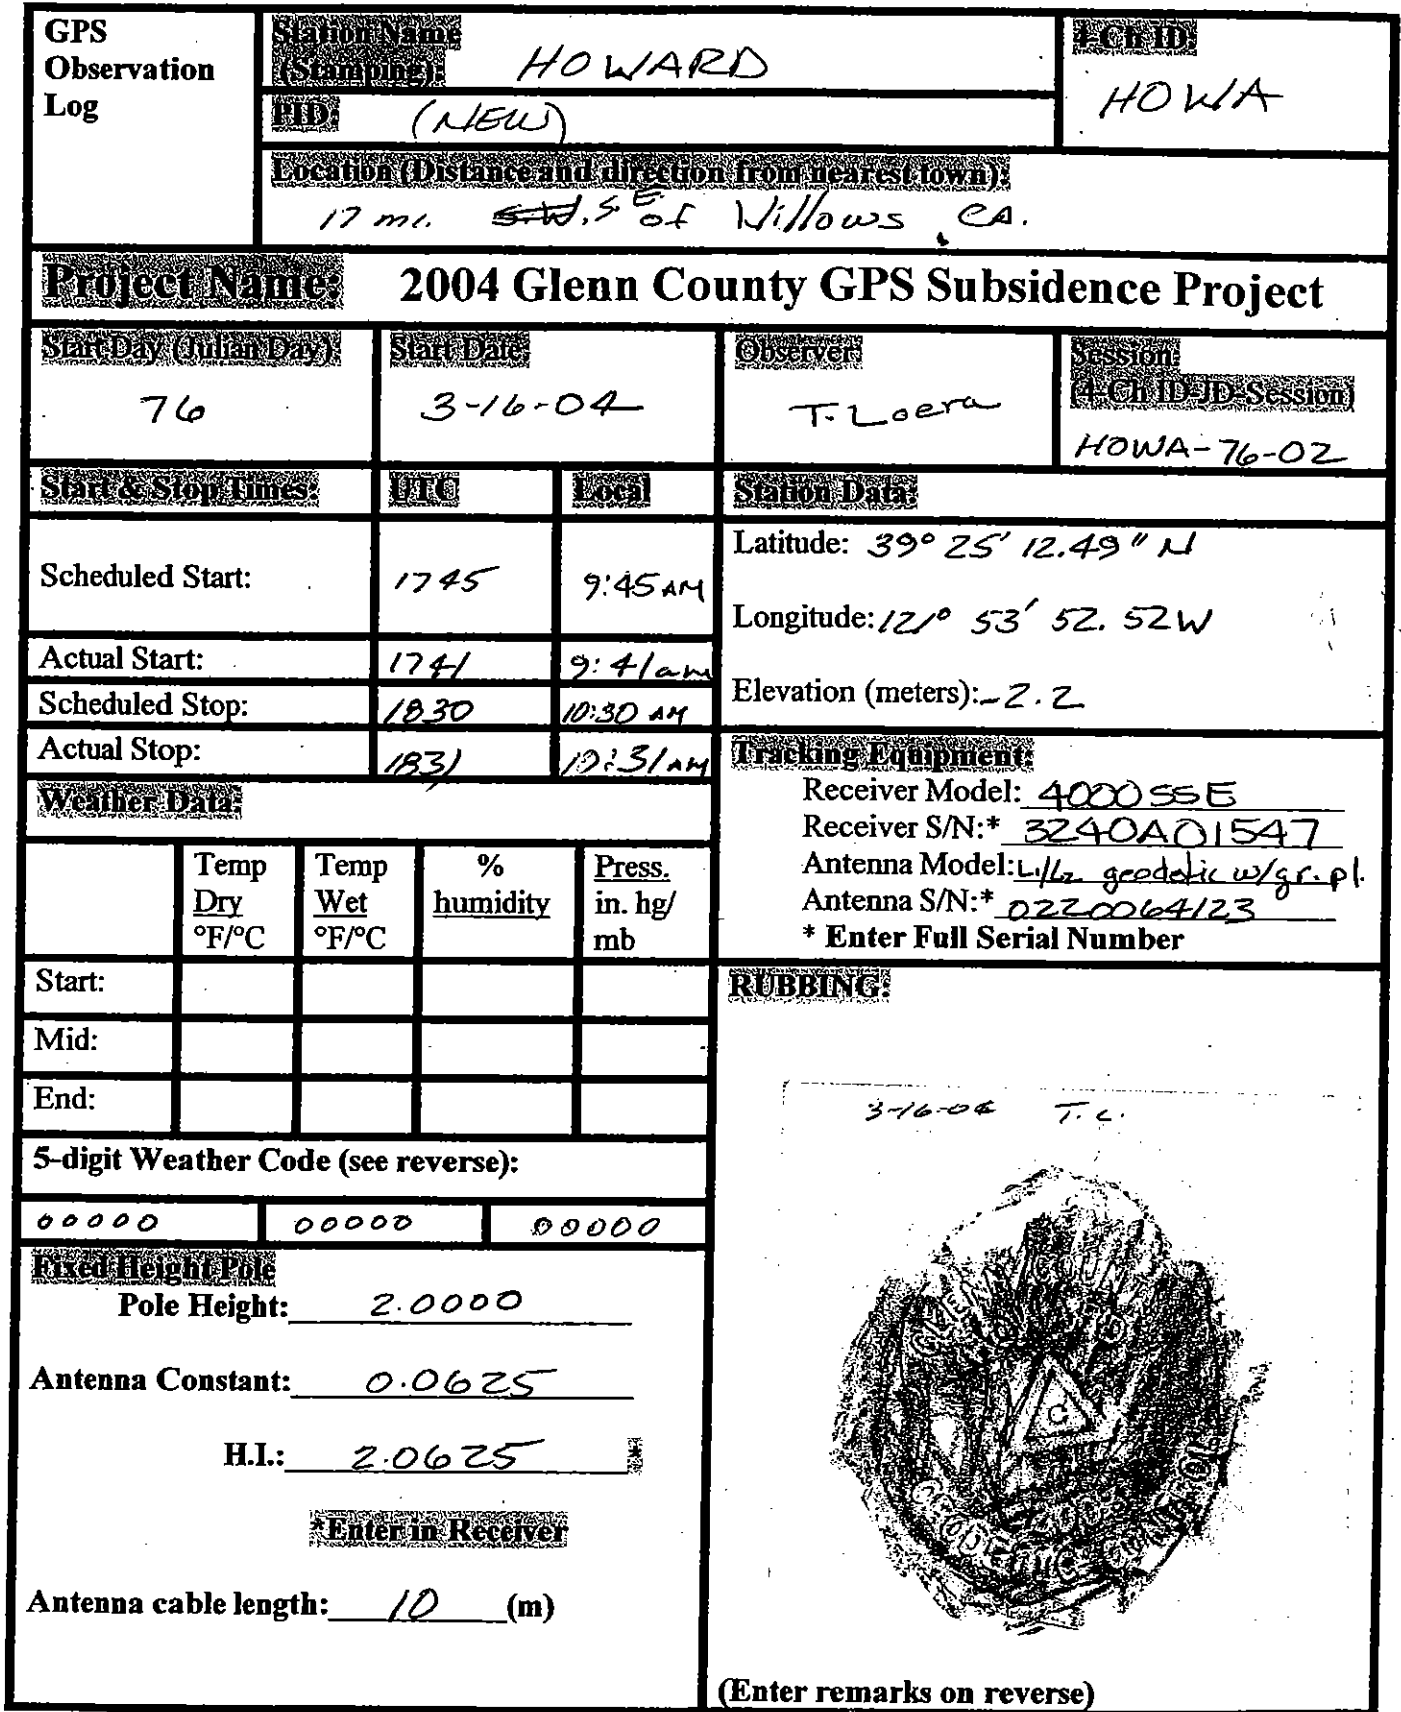 GPS
Observation
Log
Station Name
(Stamping): HOWARD
4-Ch ID:
HOWA
PID: (NEW)
Location (Distance and direction from nearest town):
17 mi. S.W. S.E of Willows, CA.
Project Name: 2004 Glenn County GPS Subsidence Project
Start Day (Julian Day):
76
Start Date:
3-16-04
Observer:
T. Loera
Session:
(4-Ch ID-JD-Session)
HOWA-76-02
Start & Stop Times: UTC Local
Scheduled Start: 1745 9:45 AM
Actual Start: 1741 9:41am
Scheduled Stop: 1830 10:30 AM
Actual Stop: 1831 10:31 AM
Station Data:
Latitude: 39° 25' 12.49" N
Longitude: 121° 53' 52.52W
Elevation (meters): -2.2
Tracking Equipment:
Receiver Model: 4000SSE
Receiver S/N:* 3240A01547
Antenna Model: L1/L2 geodetic w/gr. pl.
Antenna S/N:* 0220064123
* Enter Full Serial Number
Weather Data:
Temp
Dry
°F/°C
Temp
Wet
°F/°C
%
humidity
Press.
in. hg/
mb
Start:
Mid:
End:
5-digit Weather Code (see reverse):
00000 00000 00000
Fixed Height Pole
Pole Height: 2.0000
Antenna Constant: 0.0625
H.I.: 2.0625 *
*Enter in Receiver
Antenna cable length: 10 (m)
RUBBING:
3-16-04 T.L.
C
GEODETIC CONTROL
(Enter remarks on reverse)